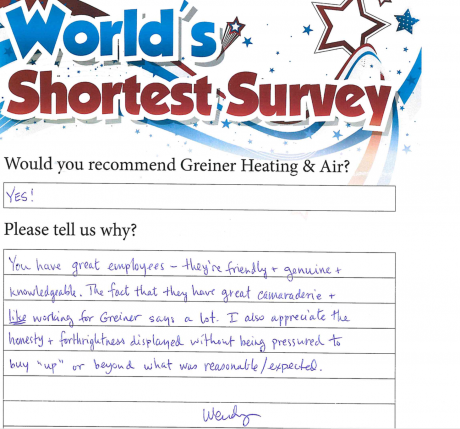 World's
Shortest Survey
Would you recommend Greiner Heating & Air?
YES!
Please tell us why?
You have great employees – they're friendly + genuine +
knowledgeable. The fact that they have great camaraderie +
like working for Greiner says a lot. I also appreciate the
honesty + forthrightness displayed without being pressured to
buy "up" or beyond what was reasonable/expected.
Wendy